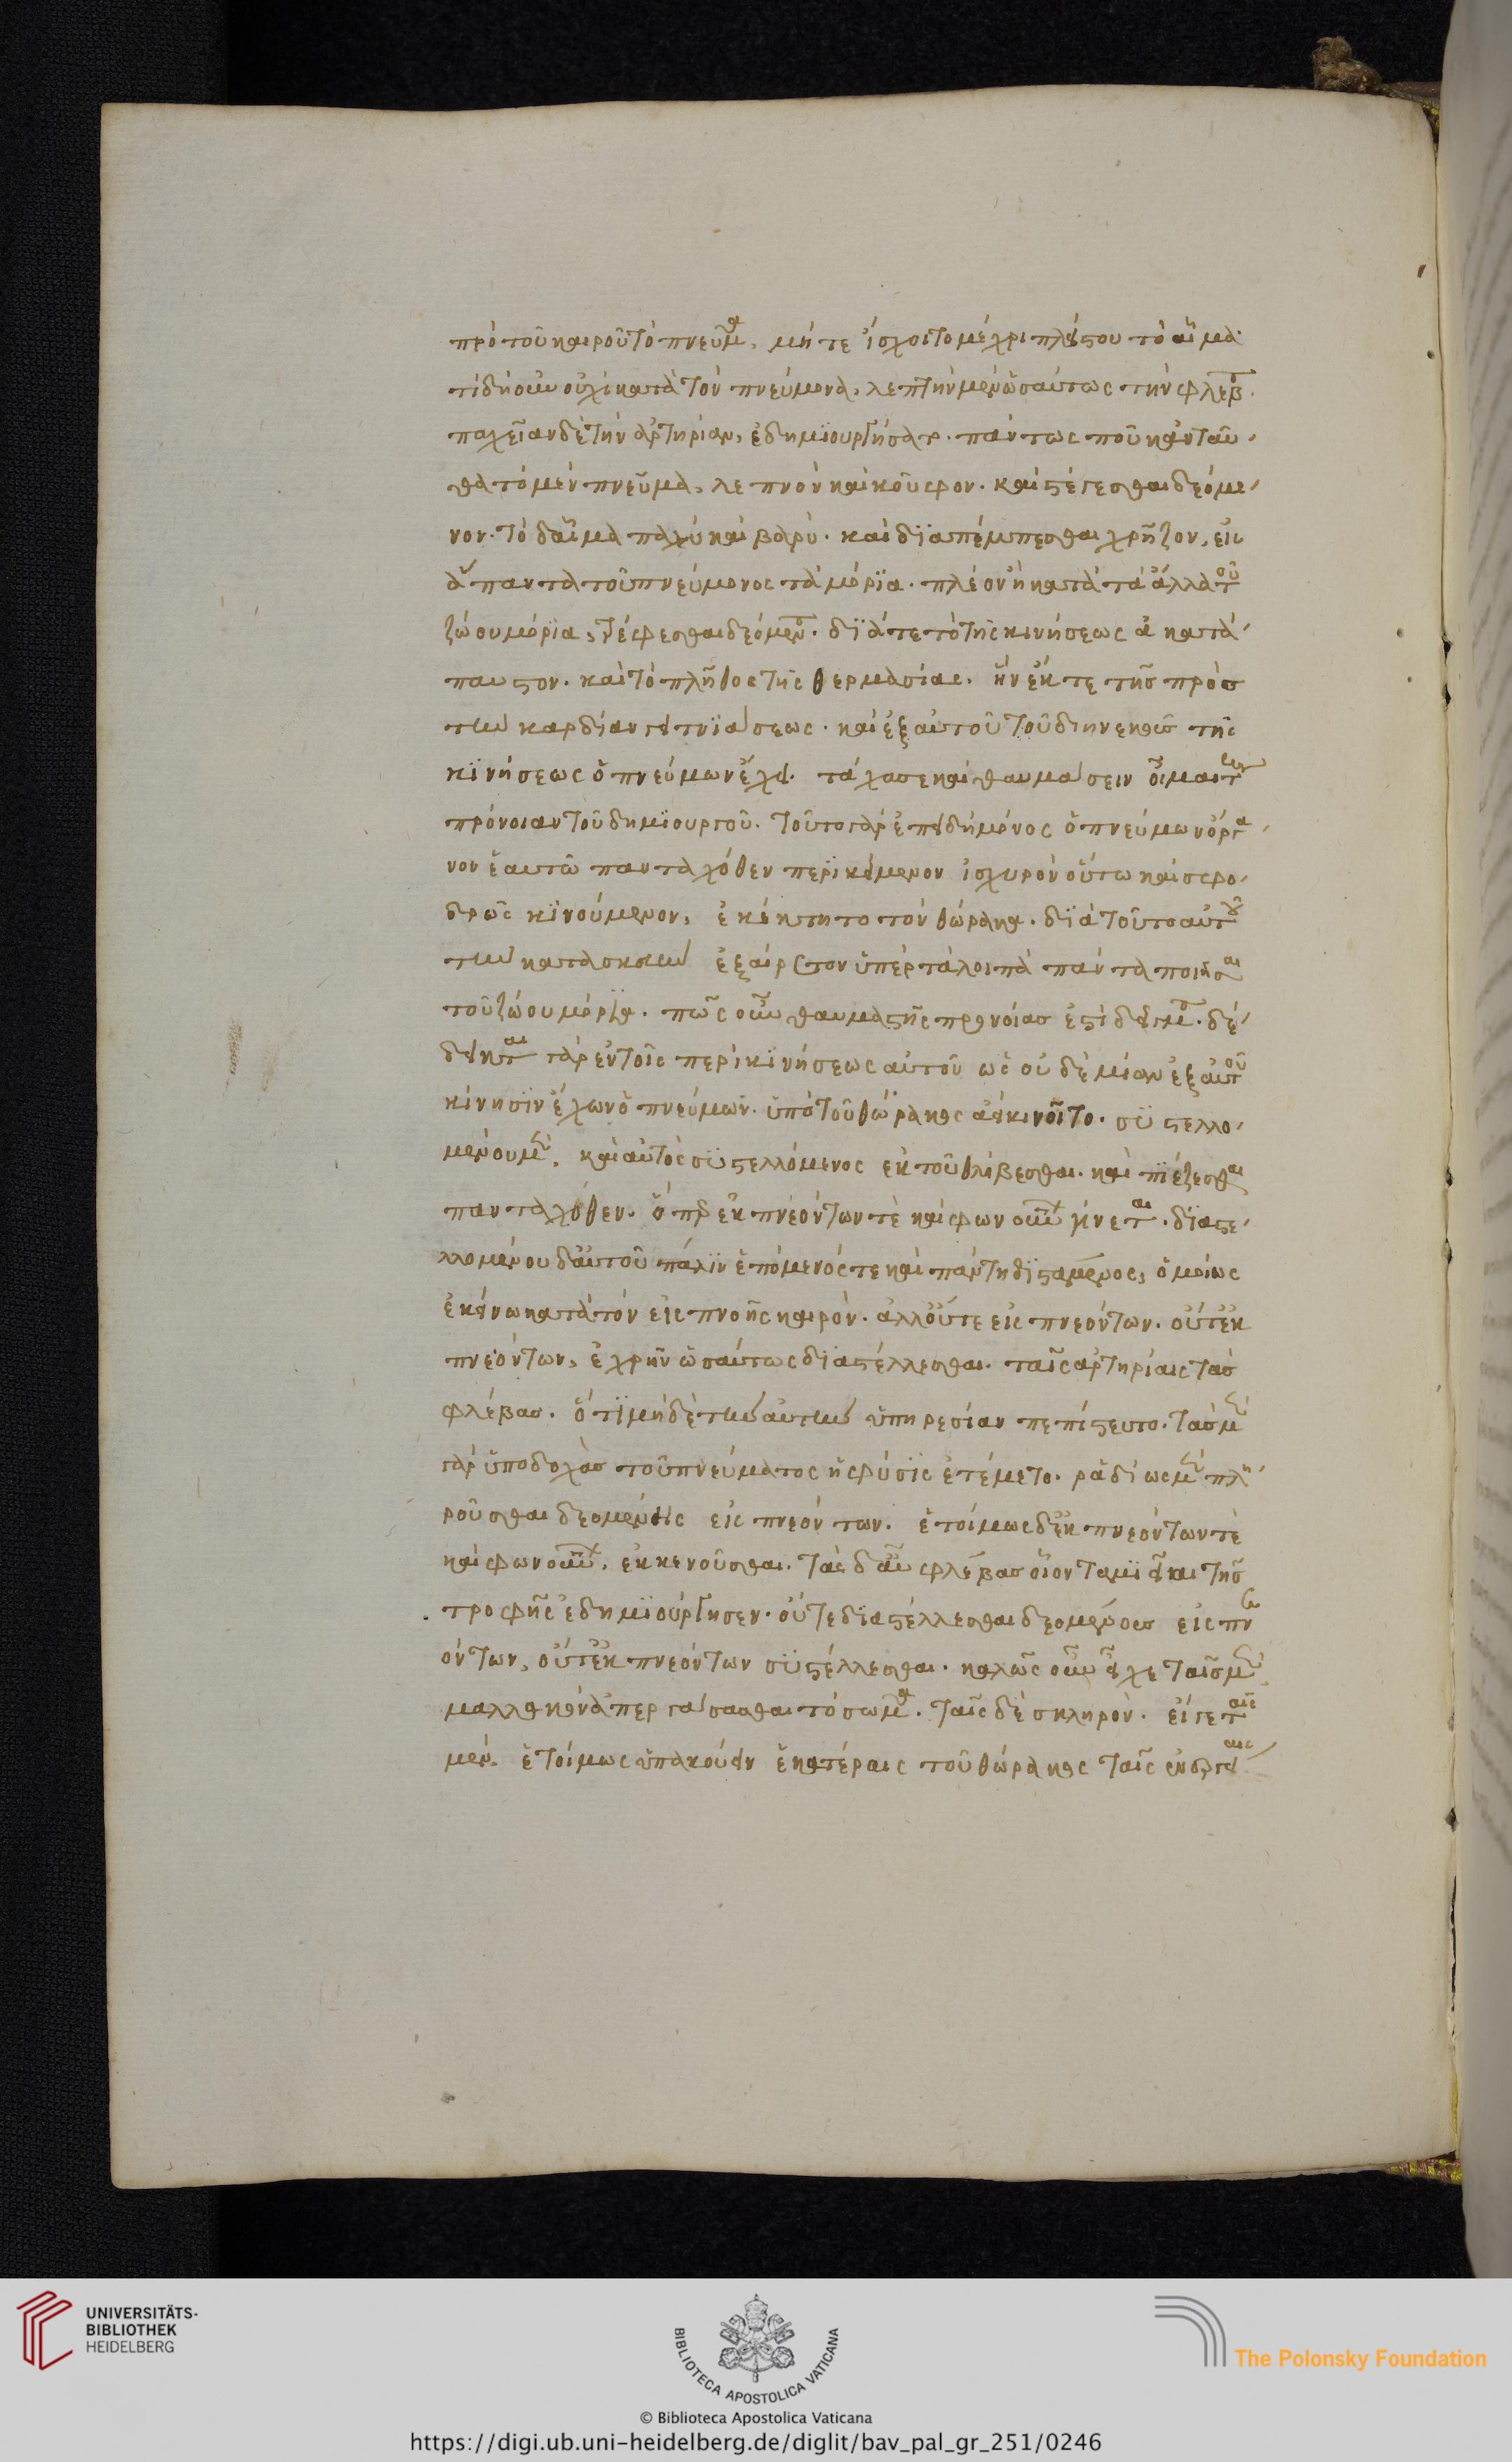 πρὸ τοῦ καιροῦ τὸ πνεῦμα, μήτε ἴσχοιτο μέχρι πλείστου τὸ αἷμα·
τί δὴ οὖν οὐχὶ κατὰ τὸν πνεύμονα, λεπτὴν μὲν ὡσαύτως τὴν φλέβ
παχεῖαν δὲ τὴν ἀρτηρίαν, ἐδημϊούργησαν. πάντως που κἀνταῦ
θα τὸ μὲν πνεῦμα, λεπτὸν καὶ κοῦφον. καὶ στέγεσθαι δεόμε
νον. τὸ δ' αἷμα παχὺ καὶ βαρύ. καὶ διαπέμπεσθαι χρῆζον, εἰς
ἅπαντα τοῦ πνεύμονος τὰ μόρϊα. πλέον ἢ κατὰ τὰ ἄλλα τοῦ
ζώου μόρια, τρέφεσθαι δεόμενον. διά τε τὸ τῆς κινήσεως ἀκατά
παυστον. καὶ τὸ πλῆθος τῆς θερμασίας. ἣν ἔκ τε τῆς πρὸς
τὴν καρδίαν γειτνιάσεως. καὶ ἐξ αὐτοῦ τοῦ διηνεκοῦς τῆς
κϊνήσεως ὁ πνεύμων ἔχει. τάχα σε καὶ θαυμάσειν οἶμαι τὴν
πρόνοιαν τοῦ δημϊουργοῦ. τοῦτο γὰρ ἐπειδὴ μόνος ὁ πνεύμων ὄργα
νον ἑαυτῶ πανταχόθεν περϊκείμενον ἰσχυρὸν οὕτω καὶ σφο
δρῶς κϊνούμενον, ἐκέκτητο τὸν θώρακα. δϊὰ τοῦτο αὐτοῦ
τὴν κατασκευὴν ἐξαίρετον ὑπὲρ τὰ λοιπὰ πάντα ποιῆσαι
τοῦ ζώου μόρϊα. πῶς οὖν θαυμαστῆς προνοίας ἐστὶ δείξομεν. δέ
δεικται γὰρ ἐν τοῖς περὶ κϊνήσεως αὐτοῦ ὡς οὐδεμίαν ἐξ αὐτοῦ
κίνησϊν ἔχων ὁ πνεύμων. ὑπὸ τοῦ θώρακος ἀεὶ κινοῖτο. συστελλο
μένου μὲν, καὶ αὐτὸς συστελλόμενος ἐκ τοῦ θλίβεσθαι. καὶ πϊέζεσθαι
πανταχόθεν. ὅπερ ἐκπνεόντων τὲ καὶ φωνούντων γίνεται. διαστε
λλομένου δ' αὐτοῦ πάλϊν ἑπόμενός τε καὶ πάντη διϊστάμενος, ὁμοίως
ἐκείνω κατὰ τὸν εἰσπνοῆς καιρόν. ἀλλ' οὔτε εἰσπνεόντων. οὔτ' ἐκ
πνεόντων, ἐχρῆν ὡσαύτως δϊαστέλλεσθαι. ταῖς ἀρτηρίαις τὰς
φλέβας. ὅτϊ μὴ δὲ τὴν αὐτὴν ὑπηρεσίαν πεπίστευτο. τὰς μὲν
γὰρ ὑποδοχὰς τοῦ πνεύματος ἡ φύσϊς ἐτέμετο. ῥαδίως μὲν πλη
ροῦσθαι δεομένας εἰσπνεόντων. ἑτοίμως δ' ἐκπνεόντων τὲ
καὶ φωνούντων, ἐκκενοῦσθαι. τὰς δ' αὖ φλέβας οἷον ταμϊεῖαι τῆς
τροφῆς ἐδημϊούργησεν. οὔτε διαστέλλεσθαι δεομένας εἰσπνε
όντων, οὔτ' ἐκπνεόντων συστέλλεσθαι. καλῶς οὖν εἶχε ταῖς μὲν
μαλακὸν ἀπεργάσασθαι τὸ σῶμα. ταῖς δὲ σκληρόν. εἴγε ταῖς
μὲν. ἑτοίμως ὑπακούειν ἑκατέραις τοῦ θώρακος ταῖς ἐνεργείαις
UNIVERSITÄTS-
BIBLIOTHEK
HEIDELBERG
BIBLIOTECA APOSTOLICA VATICANA
The Polonsky Foundation
© Biblioteca Apostolica Vaticana
https://digi.ub.uni-heidelberg.de/diglit/bav_pal_gr_251/0246